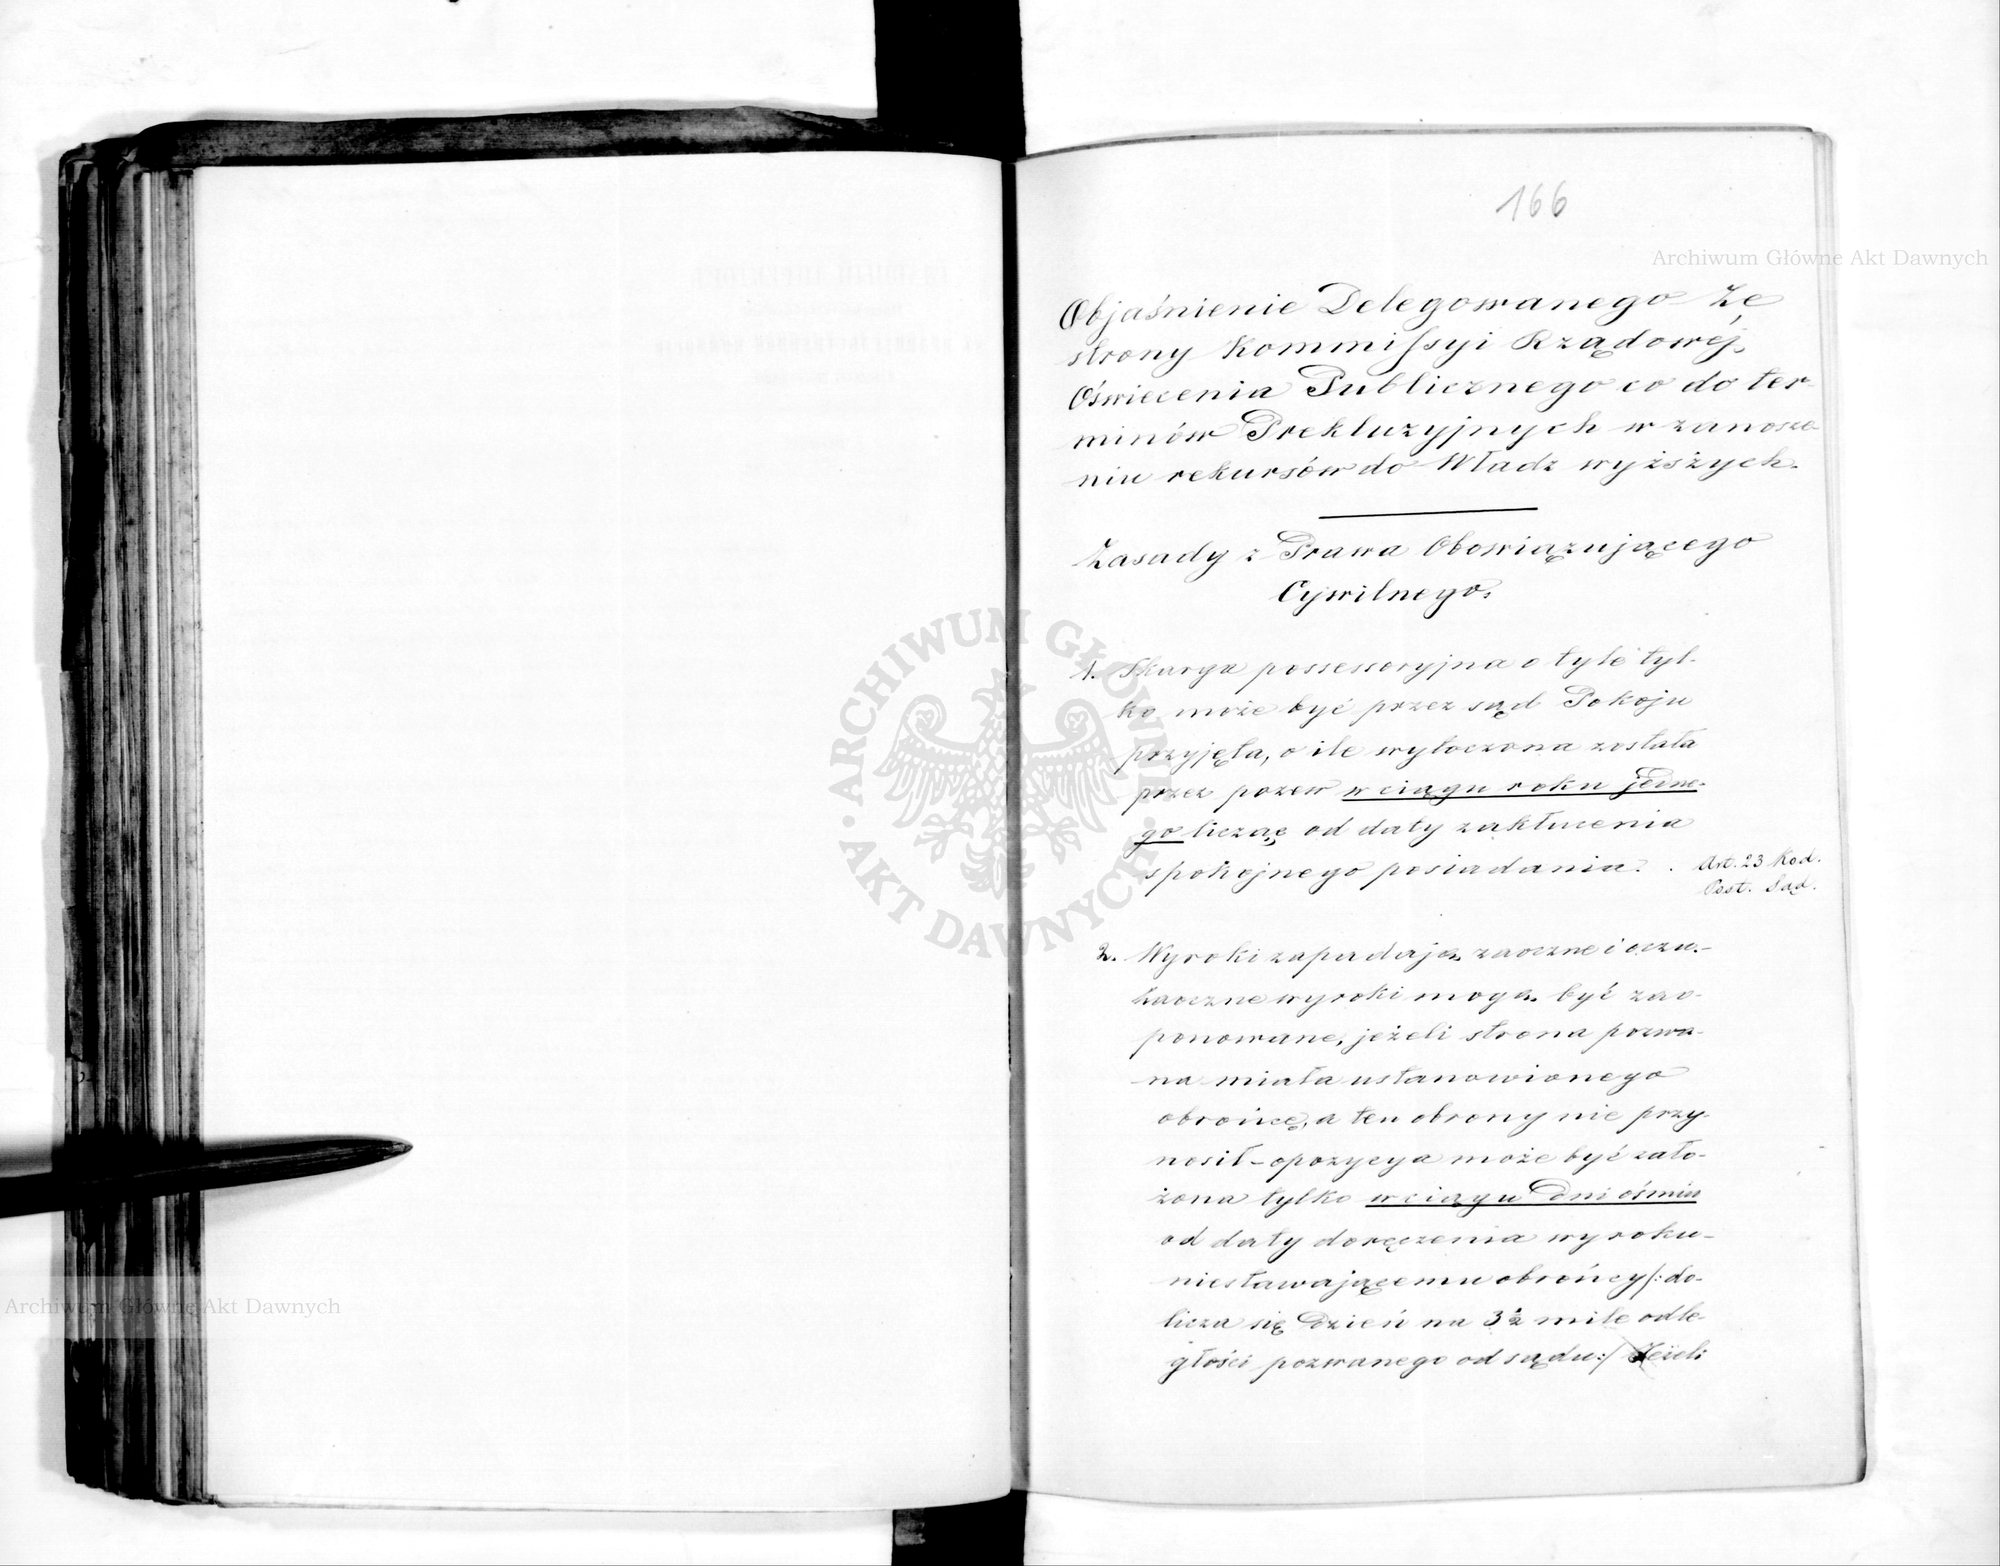 166
Archiwum Główne Akt Dawnych
Objaśnienie Delegowanego Ze
strony Kommissyi Rządowéj
Oświecenia Publicznego co do ter-
minów Prekluzyjnych w zanosze-
niu rekursów do Władz wyższych.
Zasady z Prawa Obowiązującego
Cywilnego.
1. Skarga possessoryjna o tyle tyl-
ko może być przez sąd Pokoju
przyjęta, o ile wytoczona została
przez pozew w ciągu roku jedne-
go licząc od daty zakłucenia
spokojnego posiadania. . Art. 23 Kod.
Post. Sąd.
2. Wyroki zapadają zaoczne i oczu.-
Zaoczne wyroki mogą być zao-
ponowane, jeżeli strona pozwa-
na miała ustanowionego
obrońcę, a ten obrony nie przy-
nosił – opozycya może być zało-
żona tylko w ciągu dni ośmiu
od daty doręczenia wyroku-
niestawającemu obrońcy /: do-
licza się dzień na 3½ mile odle-
głości pozwanego od sądu :/ Jeżeli
ARCHIWUM GŁÓWNE · AKT DAWNYCH ·
Archiwum Główne Akt Dawnych